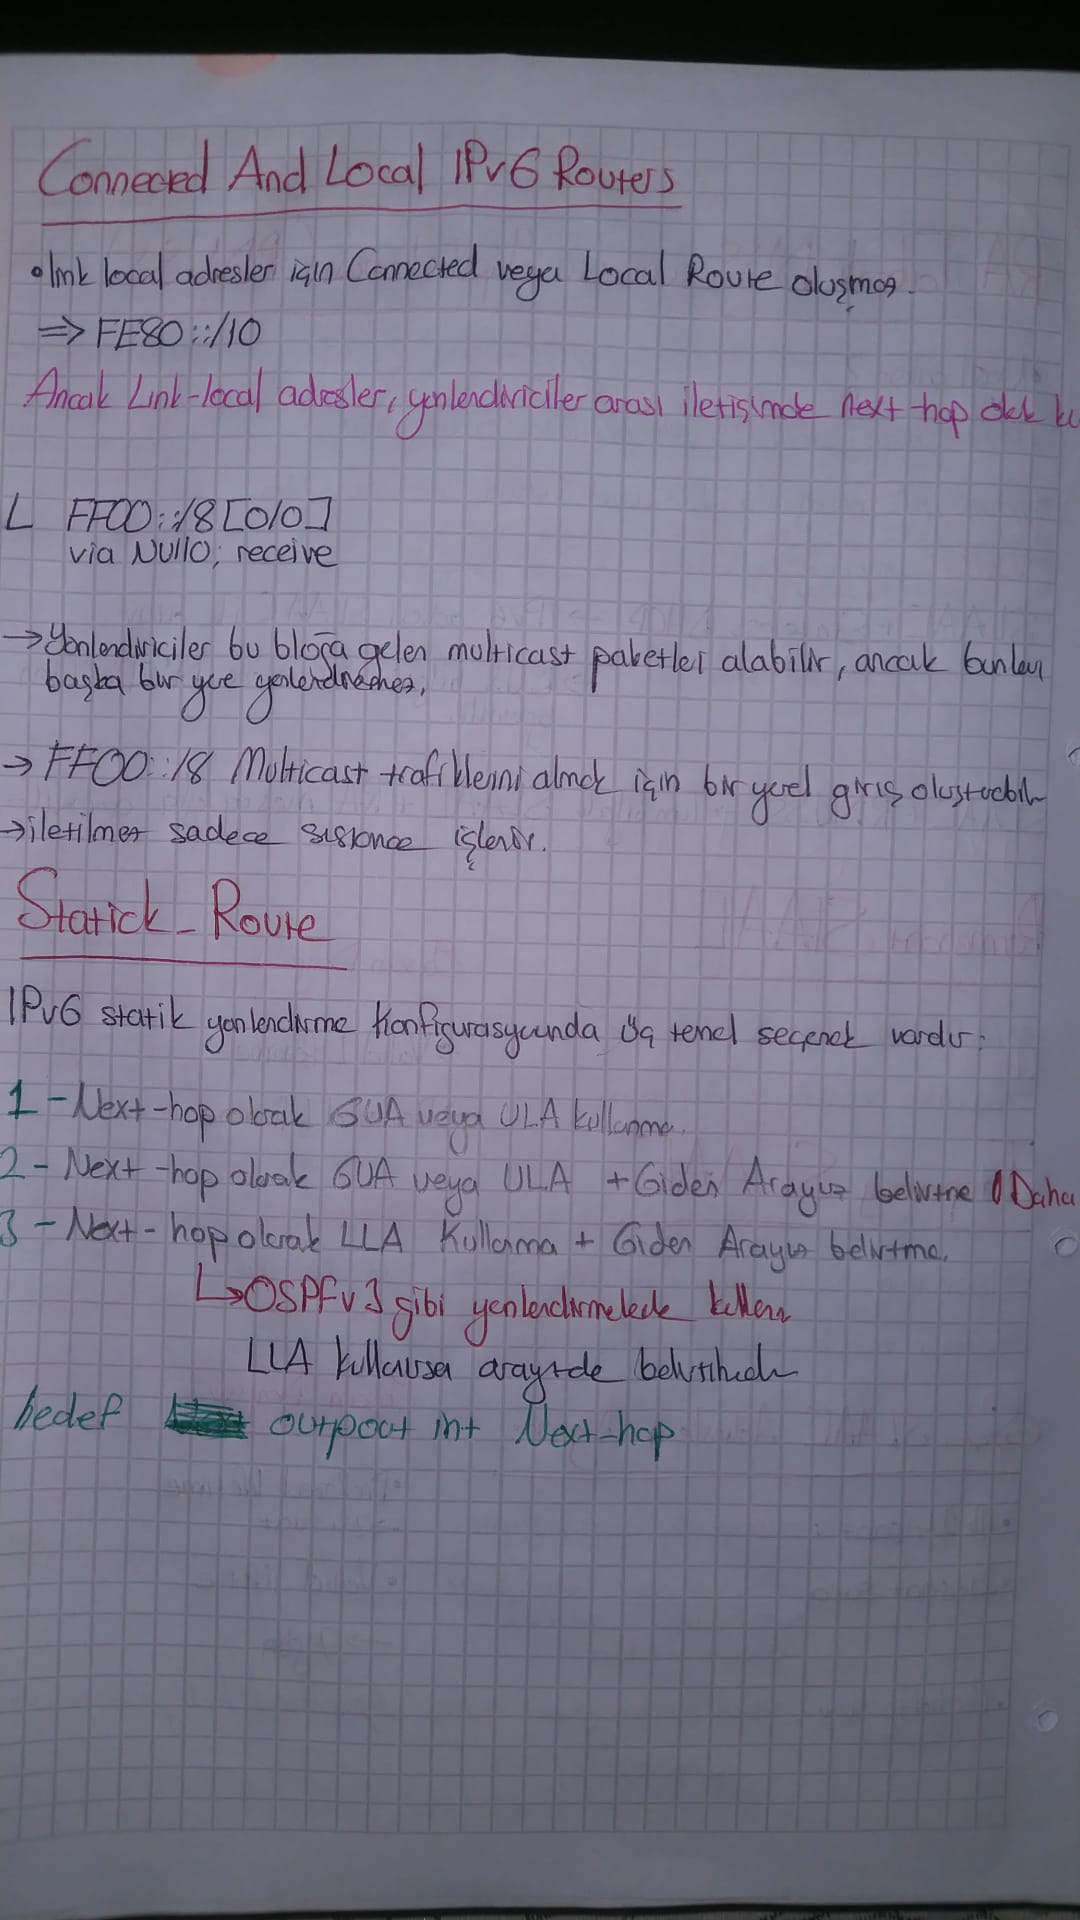 Connected And Local IPv6 Routers
• link local adresler için Connected veya Local Route oluşmaz.
=> FE80::/10
Ancak Link-local adresler, yönlendiriciler arası iletişimde next hop olak
L FF00::/8 [0/0]
via Null0, receive
→ Yönlendiriciler bu bloğa gelen multicast paketleri alabilir, ancak bunları
başka bir yere yönlendiremez,
→ FF00::/8 Multicast trafiklerini almak için bir yerel giriş oluşturabilir
→ iletilmez sadece işlenir.
Statick_Route
IPv6 statik yönlendirme Konfigurasyonunda üç temel seçenek vardır:
1 - Next-hop olarak GUA veya ULA kullanma.
2 - Next-hop olarak GUA veya ULA + Giden Arayüz belirtme (Daha
3 - Next-hop olarak LLA Kullanma + Giden Arayüz belirtme.
↳ OSPFv3 gibi yönlendirmelerde kullanır
LLA kullanırsa belirtilmeli
hedef outpout int Next-hop